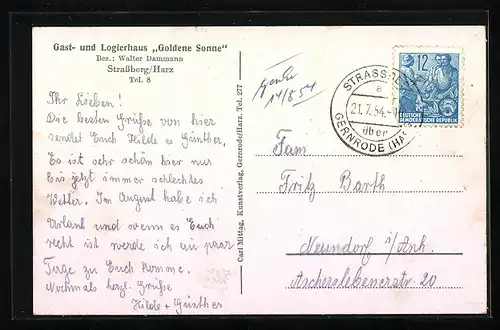 Gast- und Logierhaus „Goldene Sonne"
Bes.: Walter Dammann
Straßberg/Harz
Tel. 8
Ihr Lieben!
Die besten Grüße von hier
sendet Euch Hilde u Günther,
Es ist sehr schön hier nur
bis jetzt immer schlechtes
Wetter. Im August habe ich
Urlaub und wenn es Euch
recht ist werde ich ein paar
Tage zu Euch komme.
Nochmals herzl. Grüße
Hilde + Günther
Carl Mittag, Kunstverlag, Gernrode/Harz. Tel. 277
14/8 54
12
DEUTSCHE
DEMOKRATISCHE REPUBLIK
STRASSBERG
a
21.7.54.
über
GERNRODE (HARZ)
Fam
Fritz Barth
Neundorf i/Anh.
Ascherslebenerstr. 20